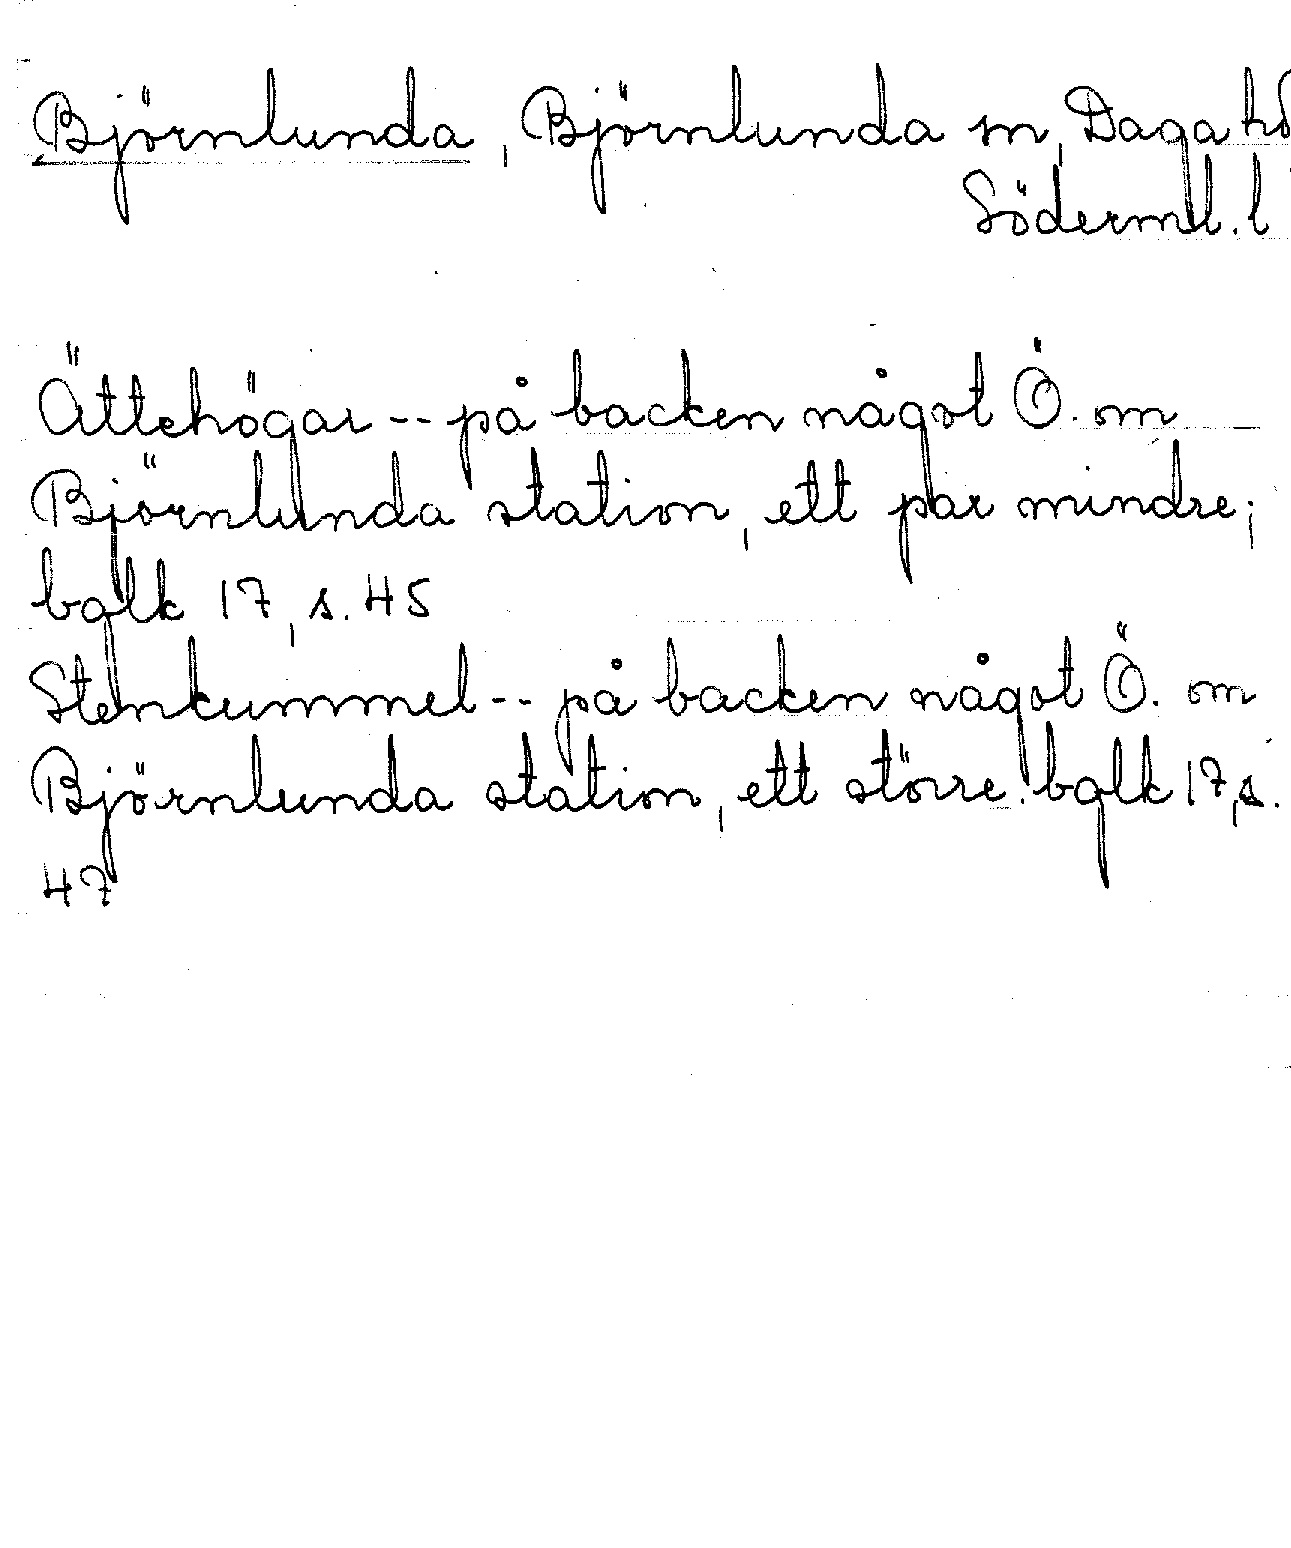 Björnlunda, Björnlunda sn, Daga hd
Söderml. l
Ättehögar -- på backen något Ö. om
Björnlunda station, ett par mindre;
bglk 17, s. 45
Stenkummel -- på backen något Ö. om
Björnlunda station, ett större. bglk 17, s.
47